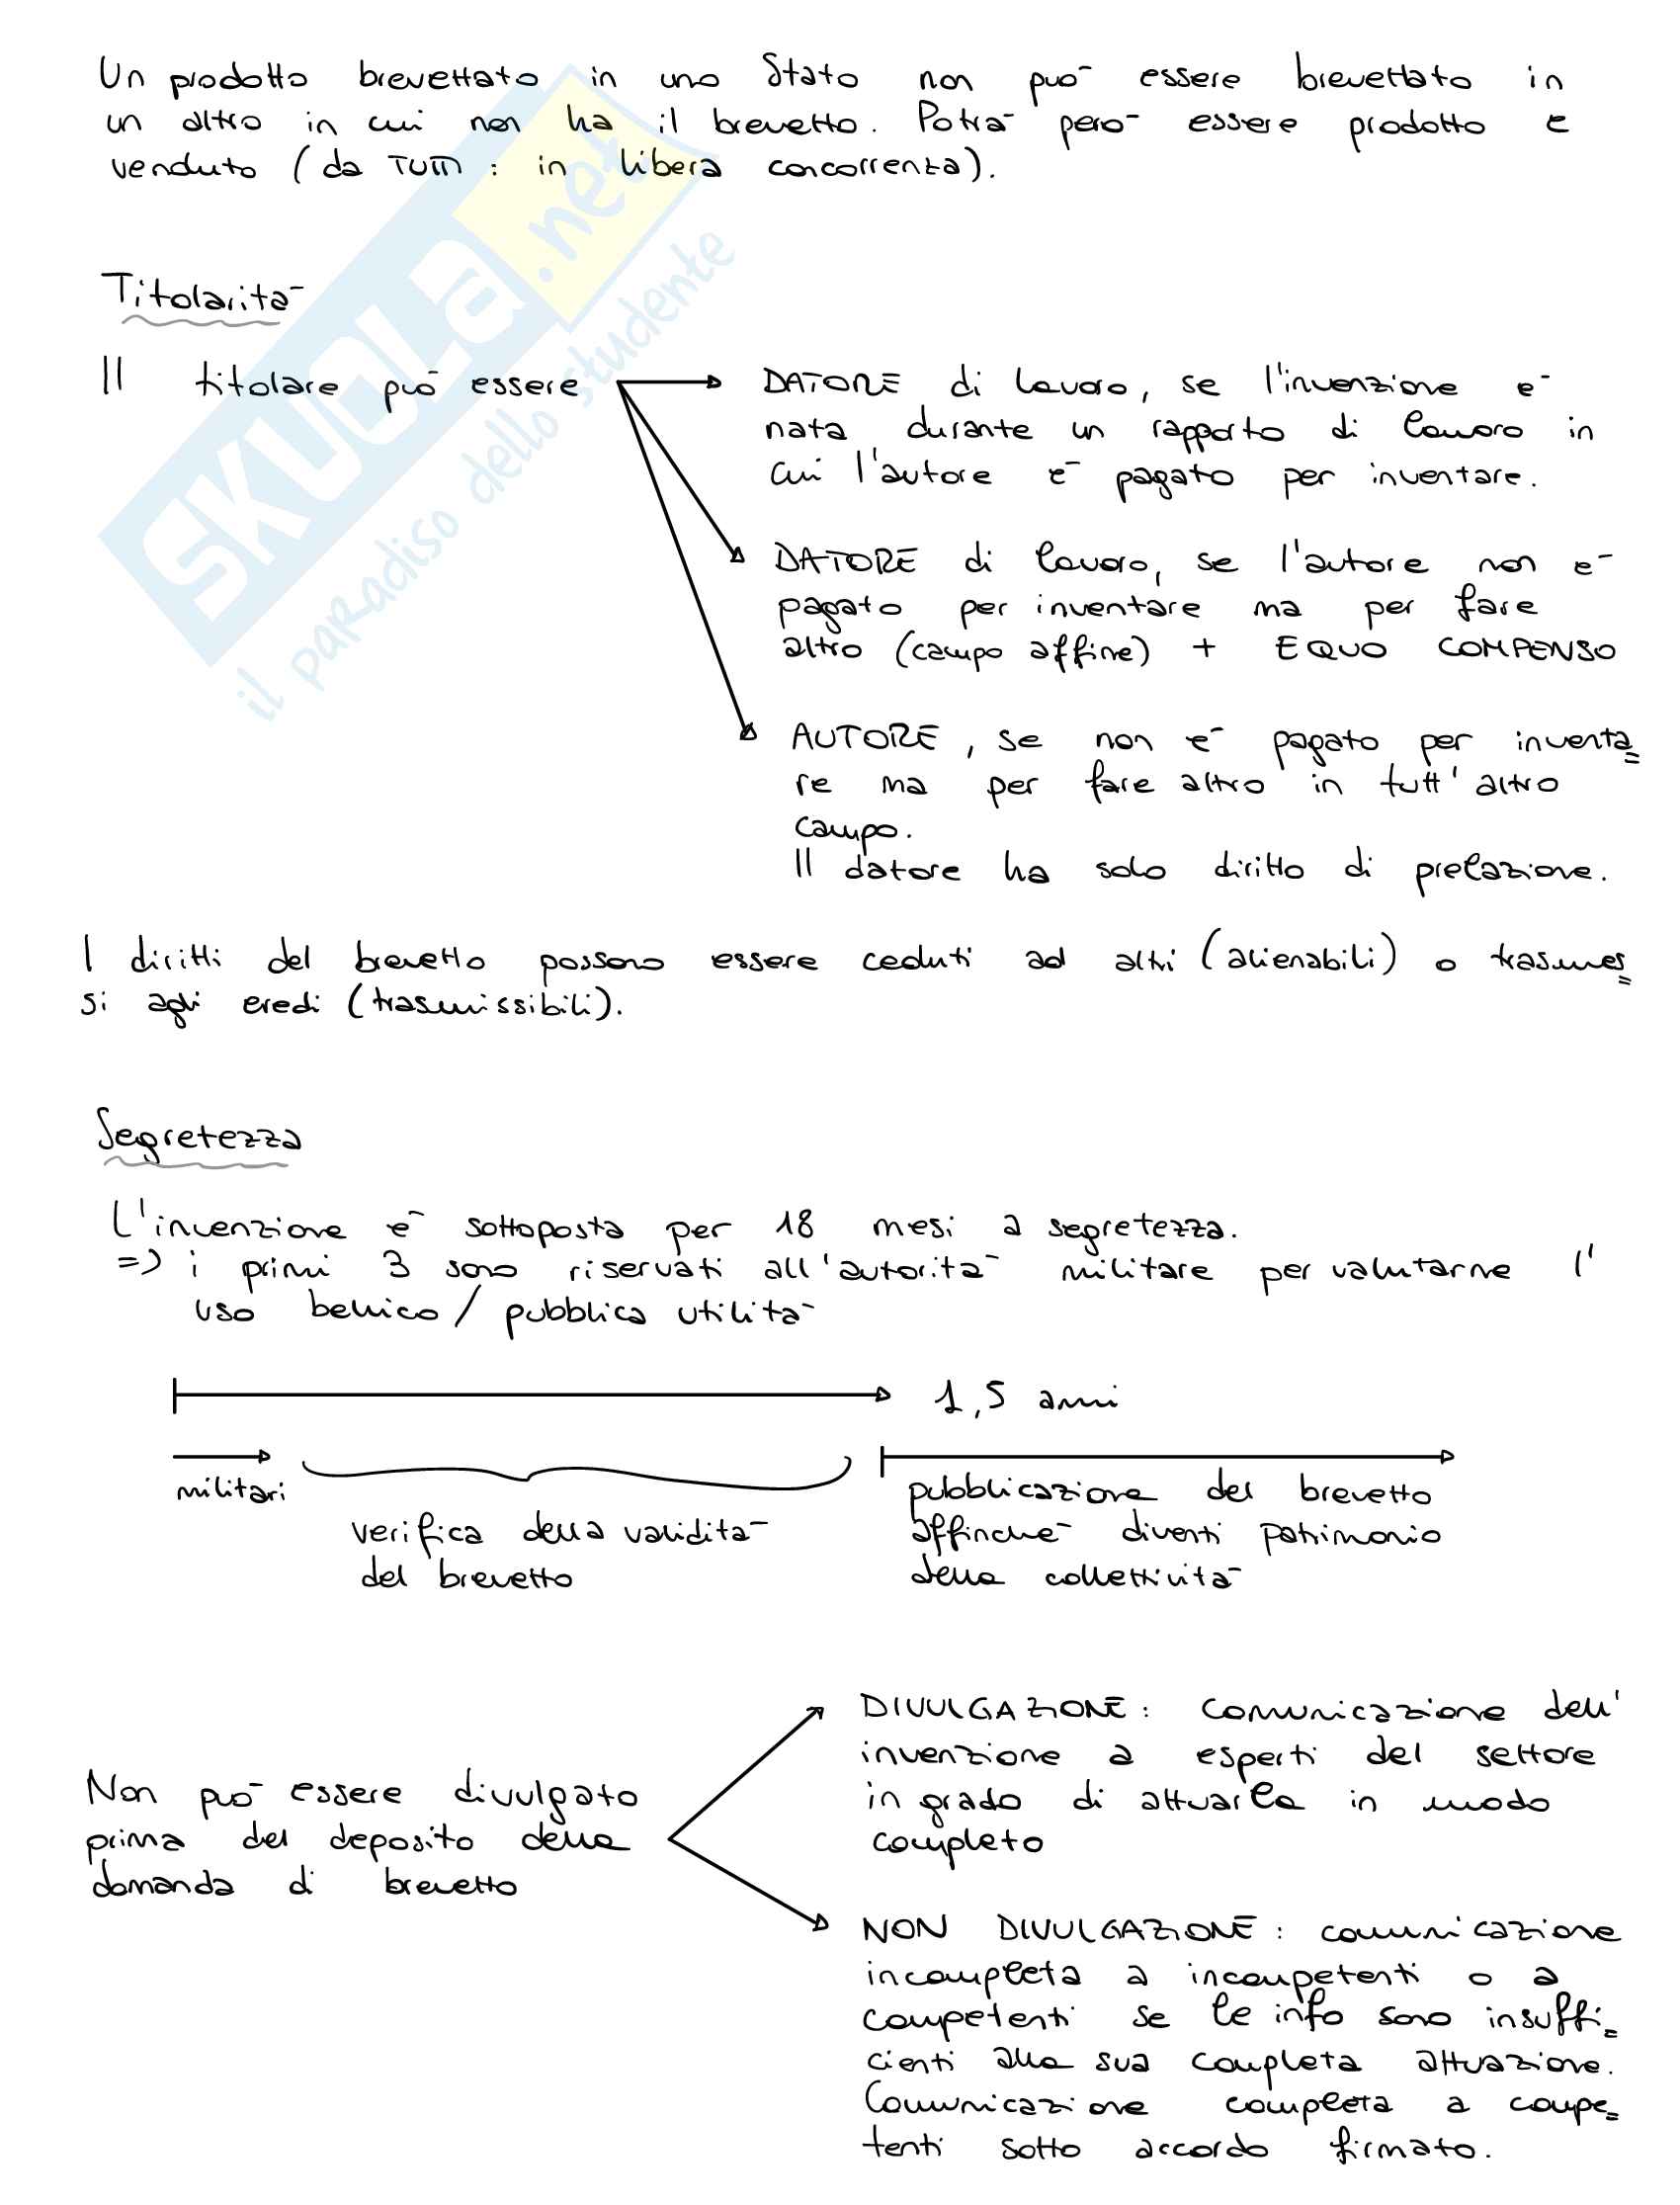 Un prodotto brevettato in uno Stato non può essere brevettato in
un altro in cui non ha il brevetto. Potrà però essere prodotto e
venduto (da TUTTI : in libera concorrenza).
Titolarità
Il titolare può essere
DATORE di lavoro, se l'invenzione è
nata durante un rapporto di lavoro in
cui l'autore è pagato per inventare.
DATORE di lavoro, se l'autore non è
pagato per inventare ma per fare
altro (campo affine) + EQUO COMPENSO
AUTORE, se non è pagato per inventa=
re ma per fare altro in tutt'altro
campo.
Il datore ha solo diritto di prelazione.
I diritti del brevetto possono essere ceduti ad altri (alienabili) o trasmes=
si agli eredi (trasmissibili).
Segretezza
L'invenzione è sottoposta per 18 mesi a segretezza.
=> i primi 3 sono riservati all'autorità militare per valutarne l'
uso bellico/pubblica utilità
1,5 anni
militari
verifica della validità
del brevetto
pubblicazione del brevetto
affinché diventi patrimonio
della collettività
Non può essere divulgato
prima del deposito della
domanda di brevetto
DIVULGAZIONE: comunicazione dell'
invenzione a esperti del settore
in grado di attuarla in modo
completo
NON DIVULGAZIONE: comunicazione
incompleta a incompetenti o a
competenti se le info sono insuffi=
cienti alla sua completa attuazione.
Comunicazione completa a compe=
tenti sotto accordo firmato.
SKUOLa.net
il paRadiso dello studente